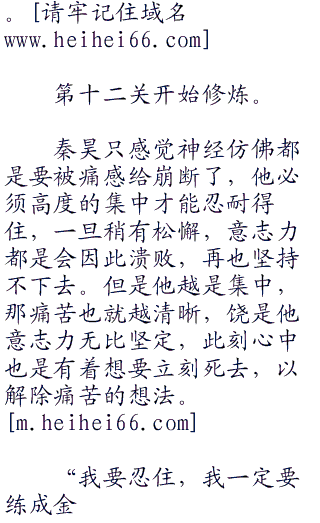 。[请牢记住域名
www.heihei66.com]
第十二关开始修炼。
秦昊只感觉神经仿佛都
是要被痛感给崩断了，他必
须高度的集中才能忍耐得
住，一旦稍有松懈，意志力
都是会因此溃败，再也坚持
不下去。但是他越是集中，
那痛苦也就越清晰，饶是他
意志力无比坚定，此刻心中
也是有着想要立刻死去，以
解除痛苦的想法。
[m.heihei66.com]
“我要忍住，我一定要
练成金